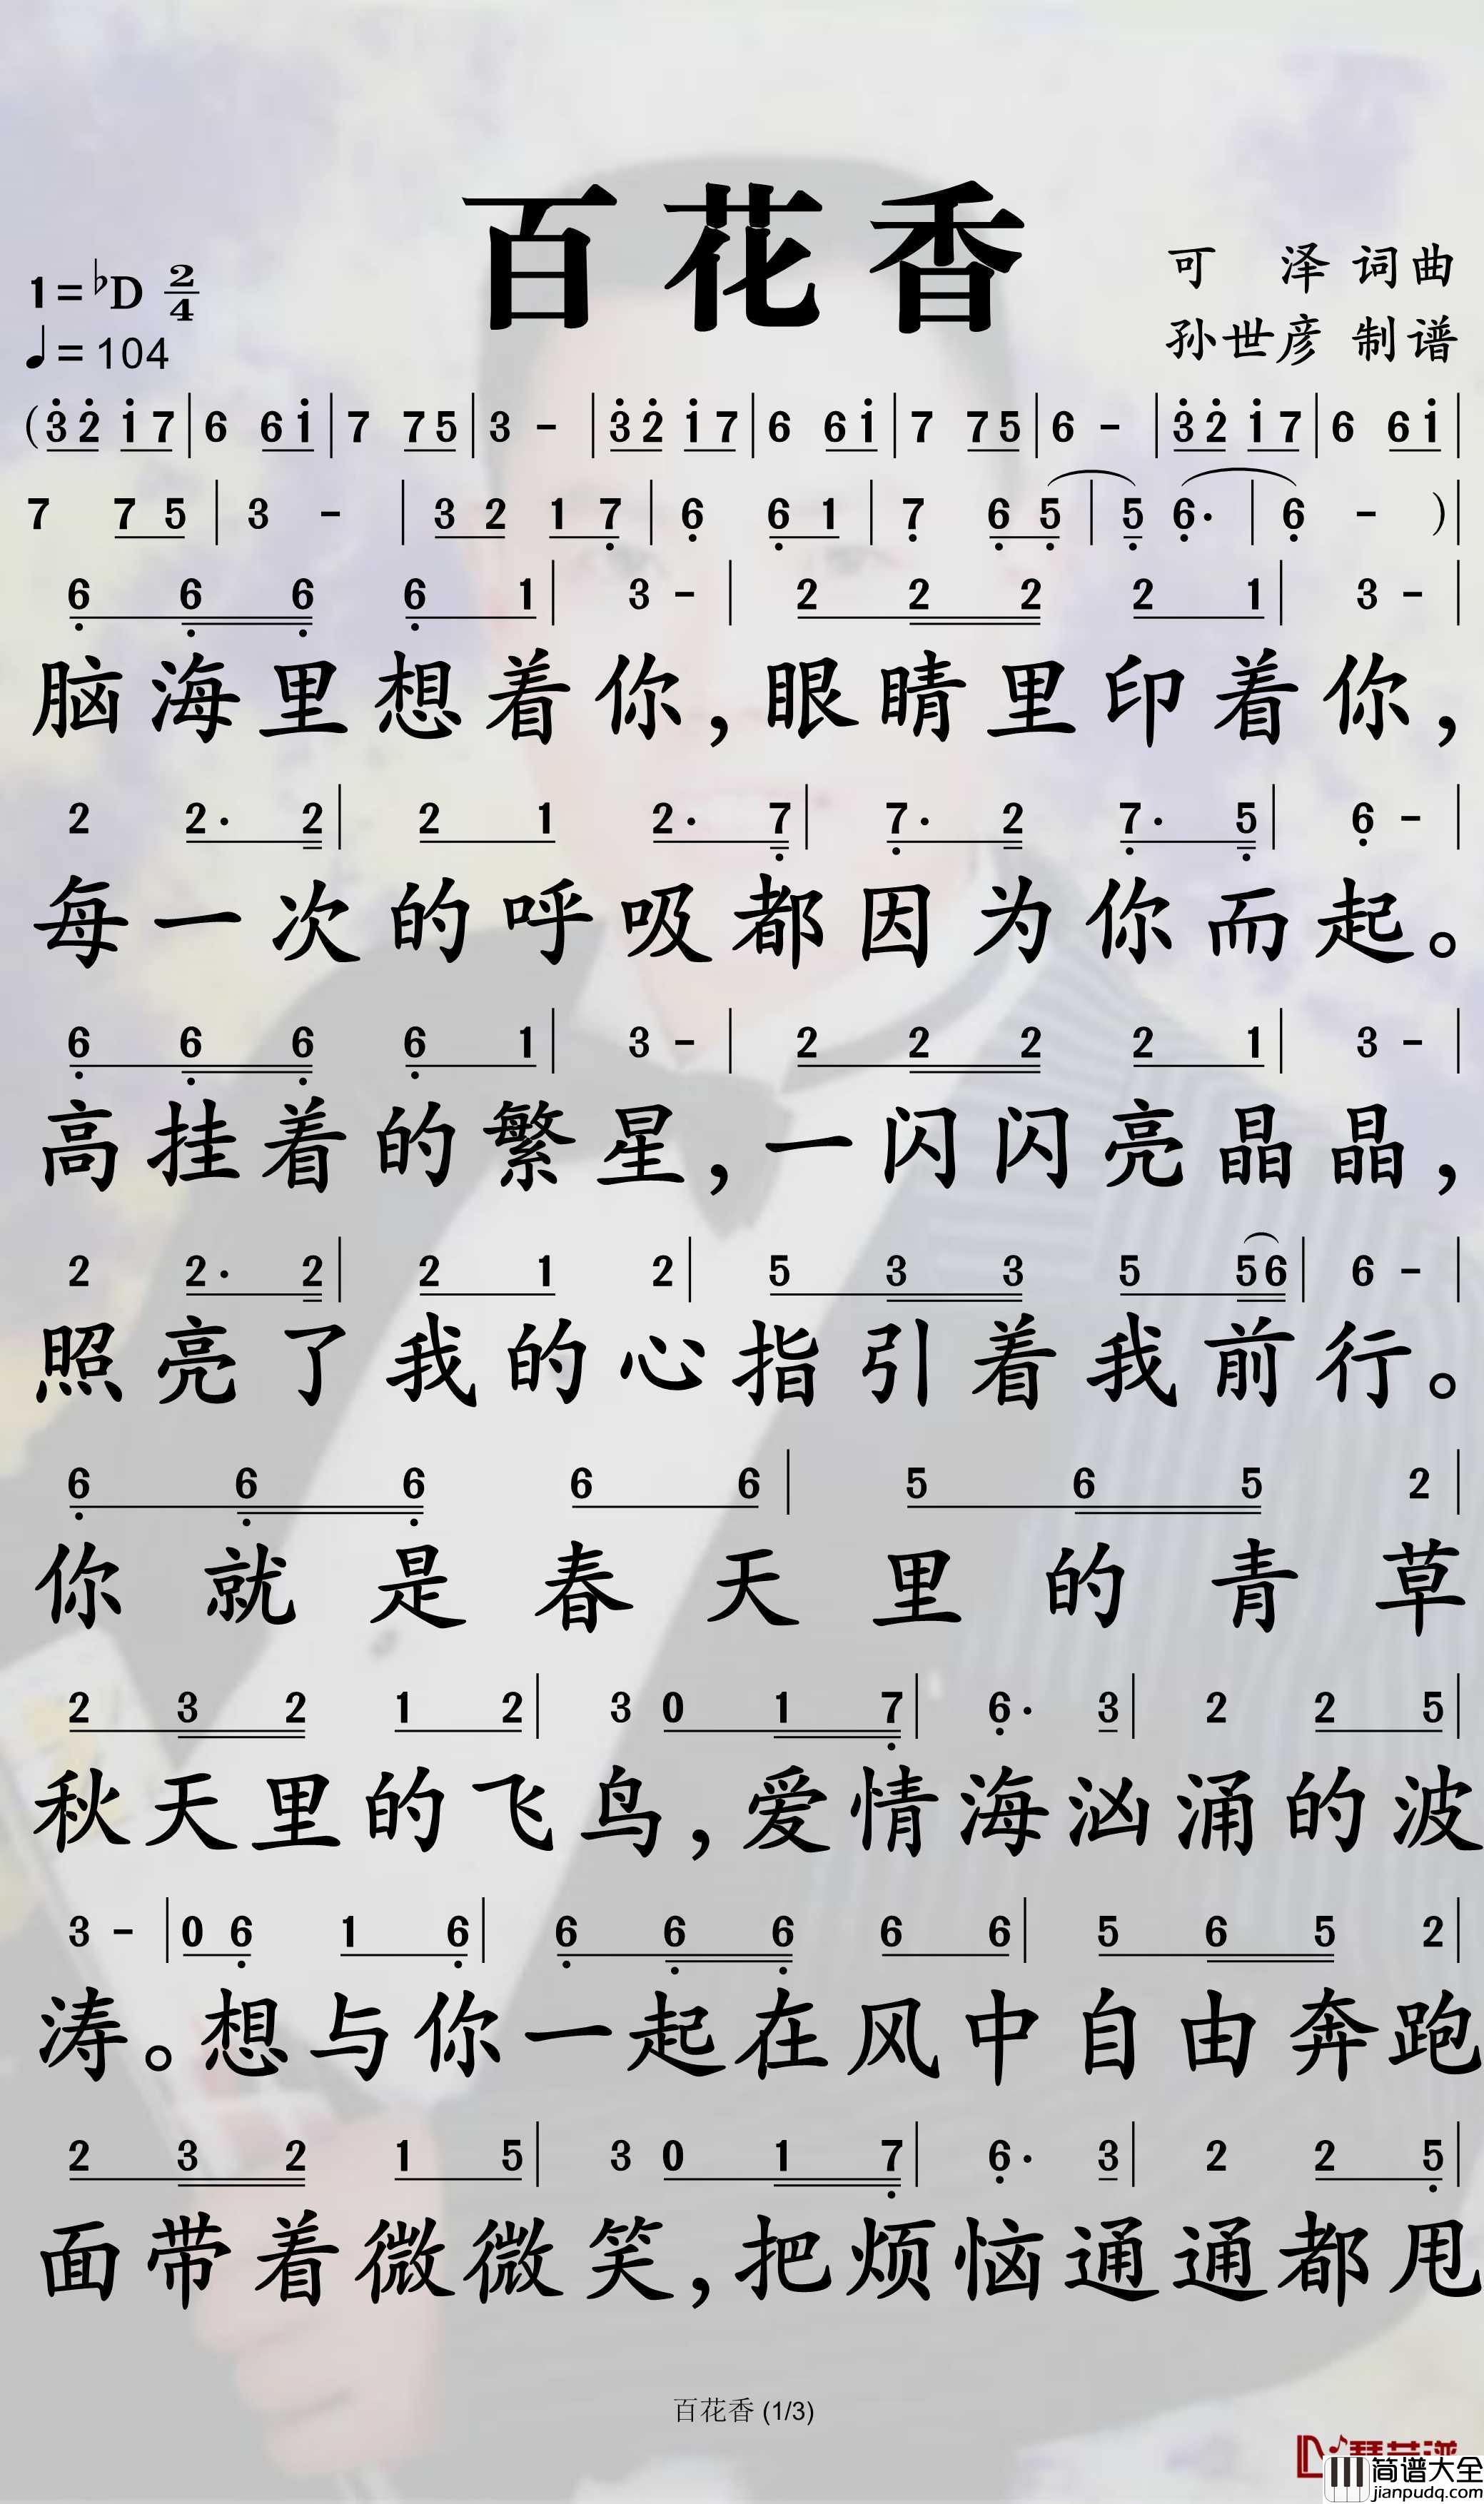 百花香
可 泽 词曲
1=♭D 2/4
孙世彦 制谱
♩=104
(3̇2̇ 1̇7|6 61̇|7 75|3 -|3̇2̇ 1̇7|6 61̇|7 75|6 -|3̇2̇ 1̇7|6 61̇|
7 75|3 -|32 17̣|6̣ 6̣1|7̣ 6̣5̣|5̣ 6̣·|6̣ -)|
6̣ 6̣ 6̣ 6̣ 1|3 -|2 2 2 2 1|3 -|
脑海里想着你,眼睛里印着你,
2 2· 2|2 1 2· 7̣|7̣· 2 7̣· 5̣|6̣ -|
每一次的呼吸都因为你而起。
6̣ 6̣ 6̣ 6̣ 1|3 -|2 2 2 2 1|3 -|
高挂着的繁星,一闪闪亮晶晶,
2 2· 2|2 1 2|5 3 3 5 56|6 -|
照亮了我的心指引着我前行。
6̣ 6̣ 6̣ 6 6|5 6 5 2|
你就是春天里的青草
2 3 2 1 2|3 0 1 7̣|6̣· 3|2 2 5|
秋天里的飞鸟,爱情海汹涌的波
3 -|0 6̣ 1 6̣|6̣ 6̣ 6̣ 6 6|5 6 5 2|
涛。想与你一起在风中自由奔跑
2 3 2 1 5|3 0 1 7̣|6̣· 3|2 2 5̣|
面带着微微笑,把烦恼通通都甩
百花香 (1/3)
简谱大全
jianpudq.com